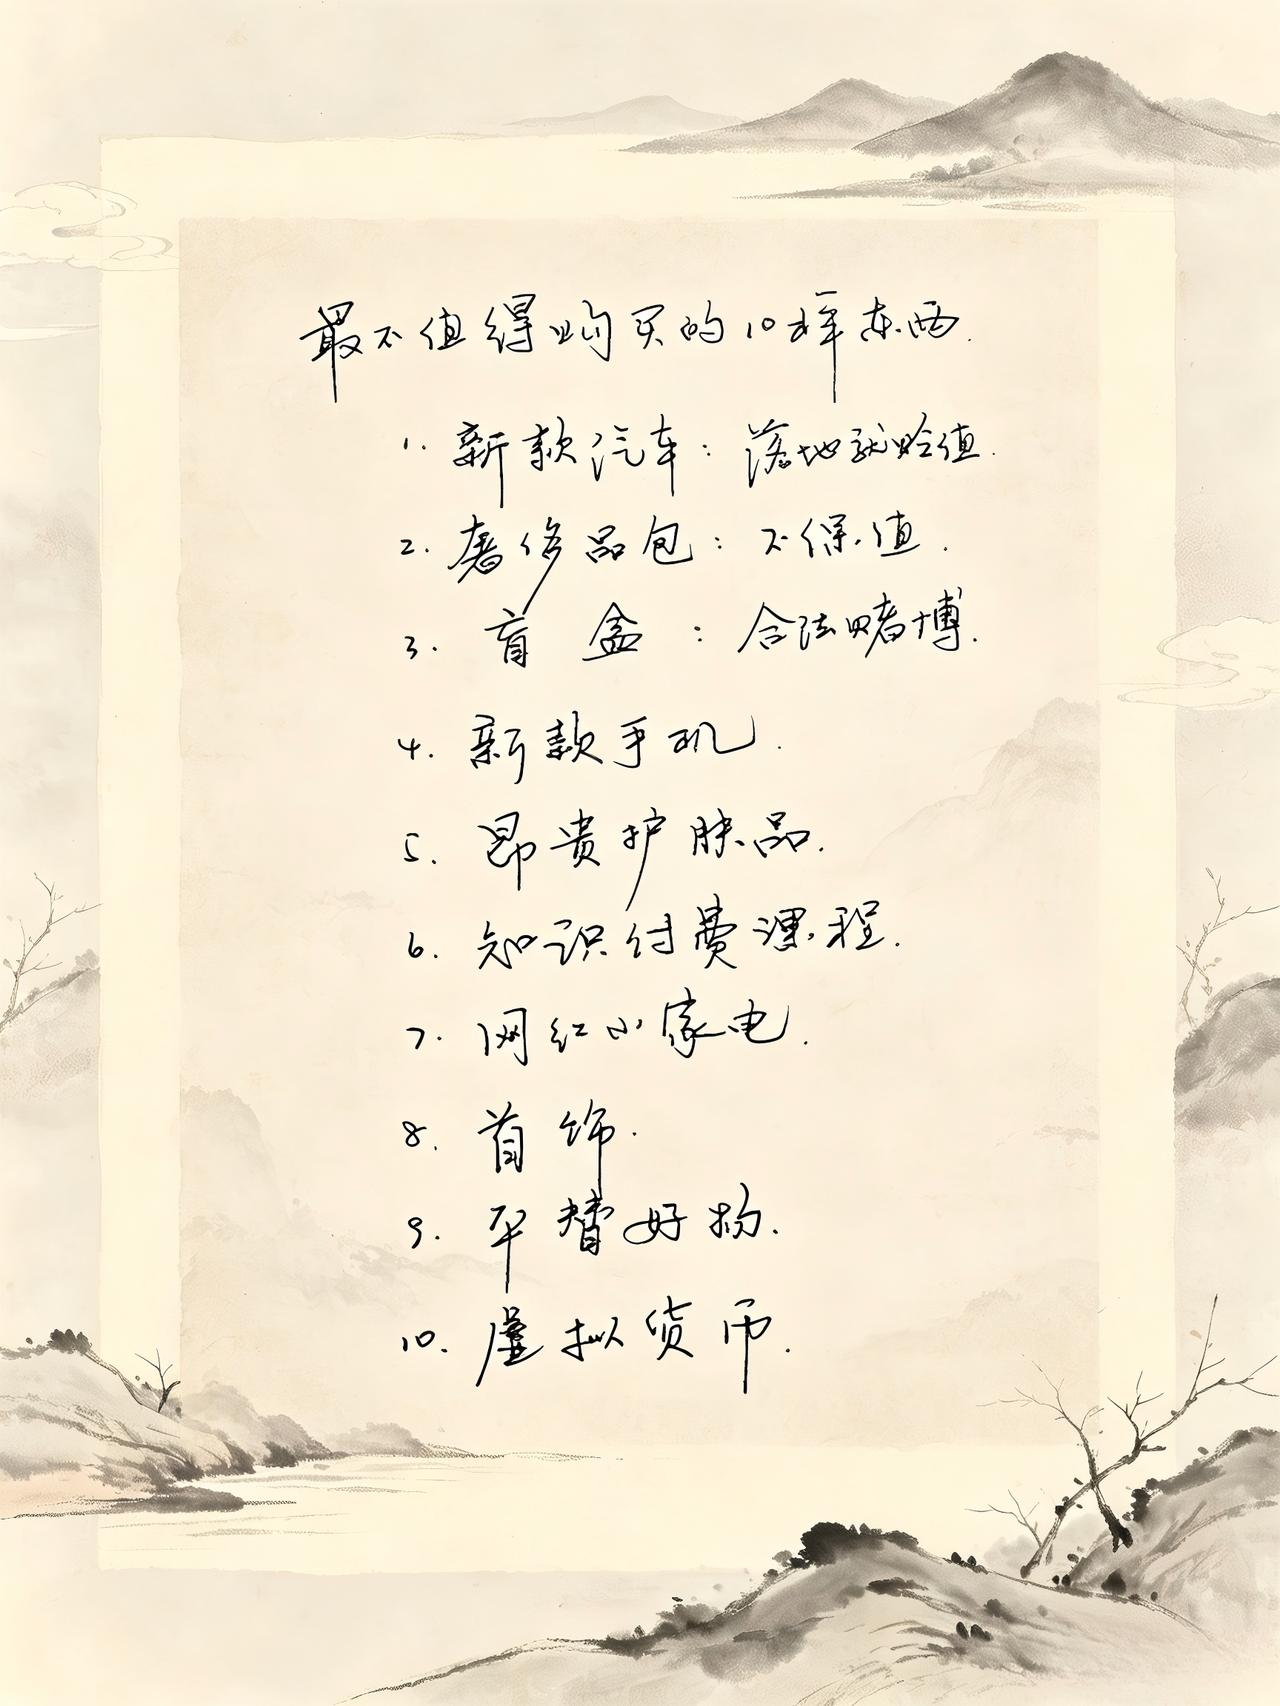 最不值得购买的10样东西.
1. 新款汽车：落地就贬值.
2. 奢侈品包：不保值.
3. 盲盒：合法赌博.
4. 新款手机.
5. 昂贵护肤品.
6. 知识付费课程.
7. 网红小家电.
8. 首饰.
9. 平替好物.
10. 虚拟货币.